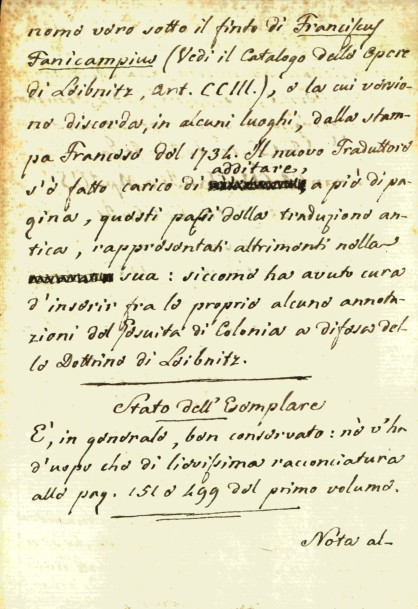 nome vero sotto il finto di Franciscus
Fanicampius (Vedi il Catalogo delle Opere
di Leibnitz, Art. CCIII.), e la cui versio-
ne discorda, in alcuni luoghi, dalla stam-
pa Francese del 1734. Il nuovo Traduttore
s'è fatto carico di additare, a piè di pa-
gina, questi passi della traduzione an-
tica, rappresentati altrimenti nella
sua: siccome ha avuto cura
d'inserir fra le proprie alcune annota-
zioni del Gesuita di Colonia a difesa del-
le Dottrine di Leibnitz.
Stato dell'Esemplare
È, in generale, ben conservato: nè v'ha
d'uopo che di lievissima racconciatura
alle pag. 151 e 499 del primo volume.
Nota al-